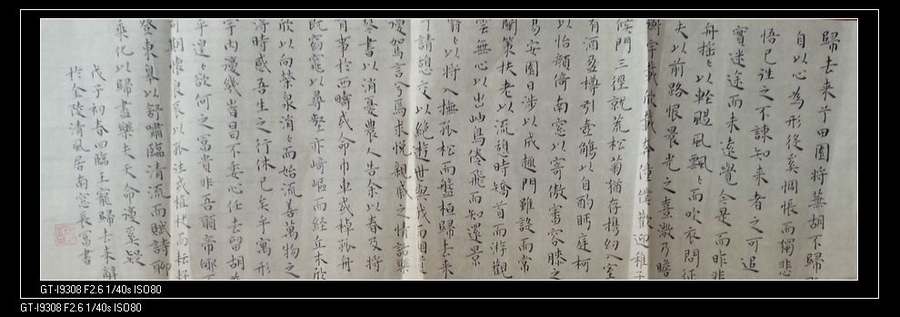 歸去来兮田園將蕪胡不歸
自以心為形役奚惆悵而獨悲
悟已往之不諫知来者之可追
實迷途而未遠覺今是而昨非
舟摇々以輕颺風飄々而吹衣問征
夫以前路恨晨光之熹微乃瞻
衡宇載欣載奔僮僕歡迎稚子
候門三徑就荒松菊猶存攜幼入室
有酒盈樽引壺觴以自酌眄庭柯
以怡顏倚南窓以寄傲審容膝之
易安園日涉以成趣門雖設而常
關策扶老以流憩時矯首而游觀
雲無心以出岫鳥倦飛而知還景
翳以將入撫孤松而盤桓歸去来
兮請息交以絶遊世與我而相遺
復駕言兮焉求悦親戚之情話樂
琴書以消憂農人告余以春及將
有事於西疇或命巾車或棹孤舟
既窈窕以尋壑亦崎嶇而經丘木欣
欣以向榮泉涓々而始流善萬物之
得時感吾生之行休已矣乎寓形
宇内復幾曷不委心任去留胡
乎遑々欲何之富貴非吾願帝鄉
可期懷良辰以孤往或植杖而耘耔
登東皋以舒嘯臨清流而賦詩聊
乘化以歸盡樂夫天命復奚疑
戊子初春四臨王寵歸去来辭
於金陵清風居南窓長富書
GT-I9308 F2.6 1/40s ISO80
GT-I9308 F2.6 1/40s ISO80